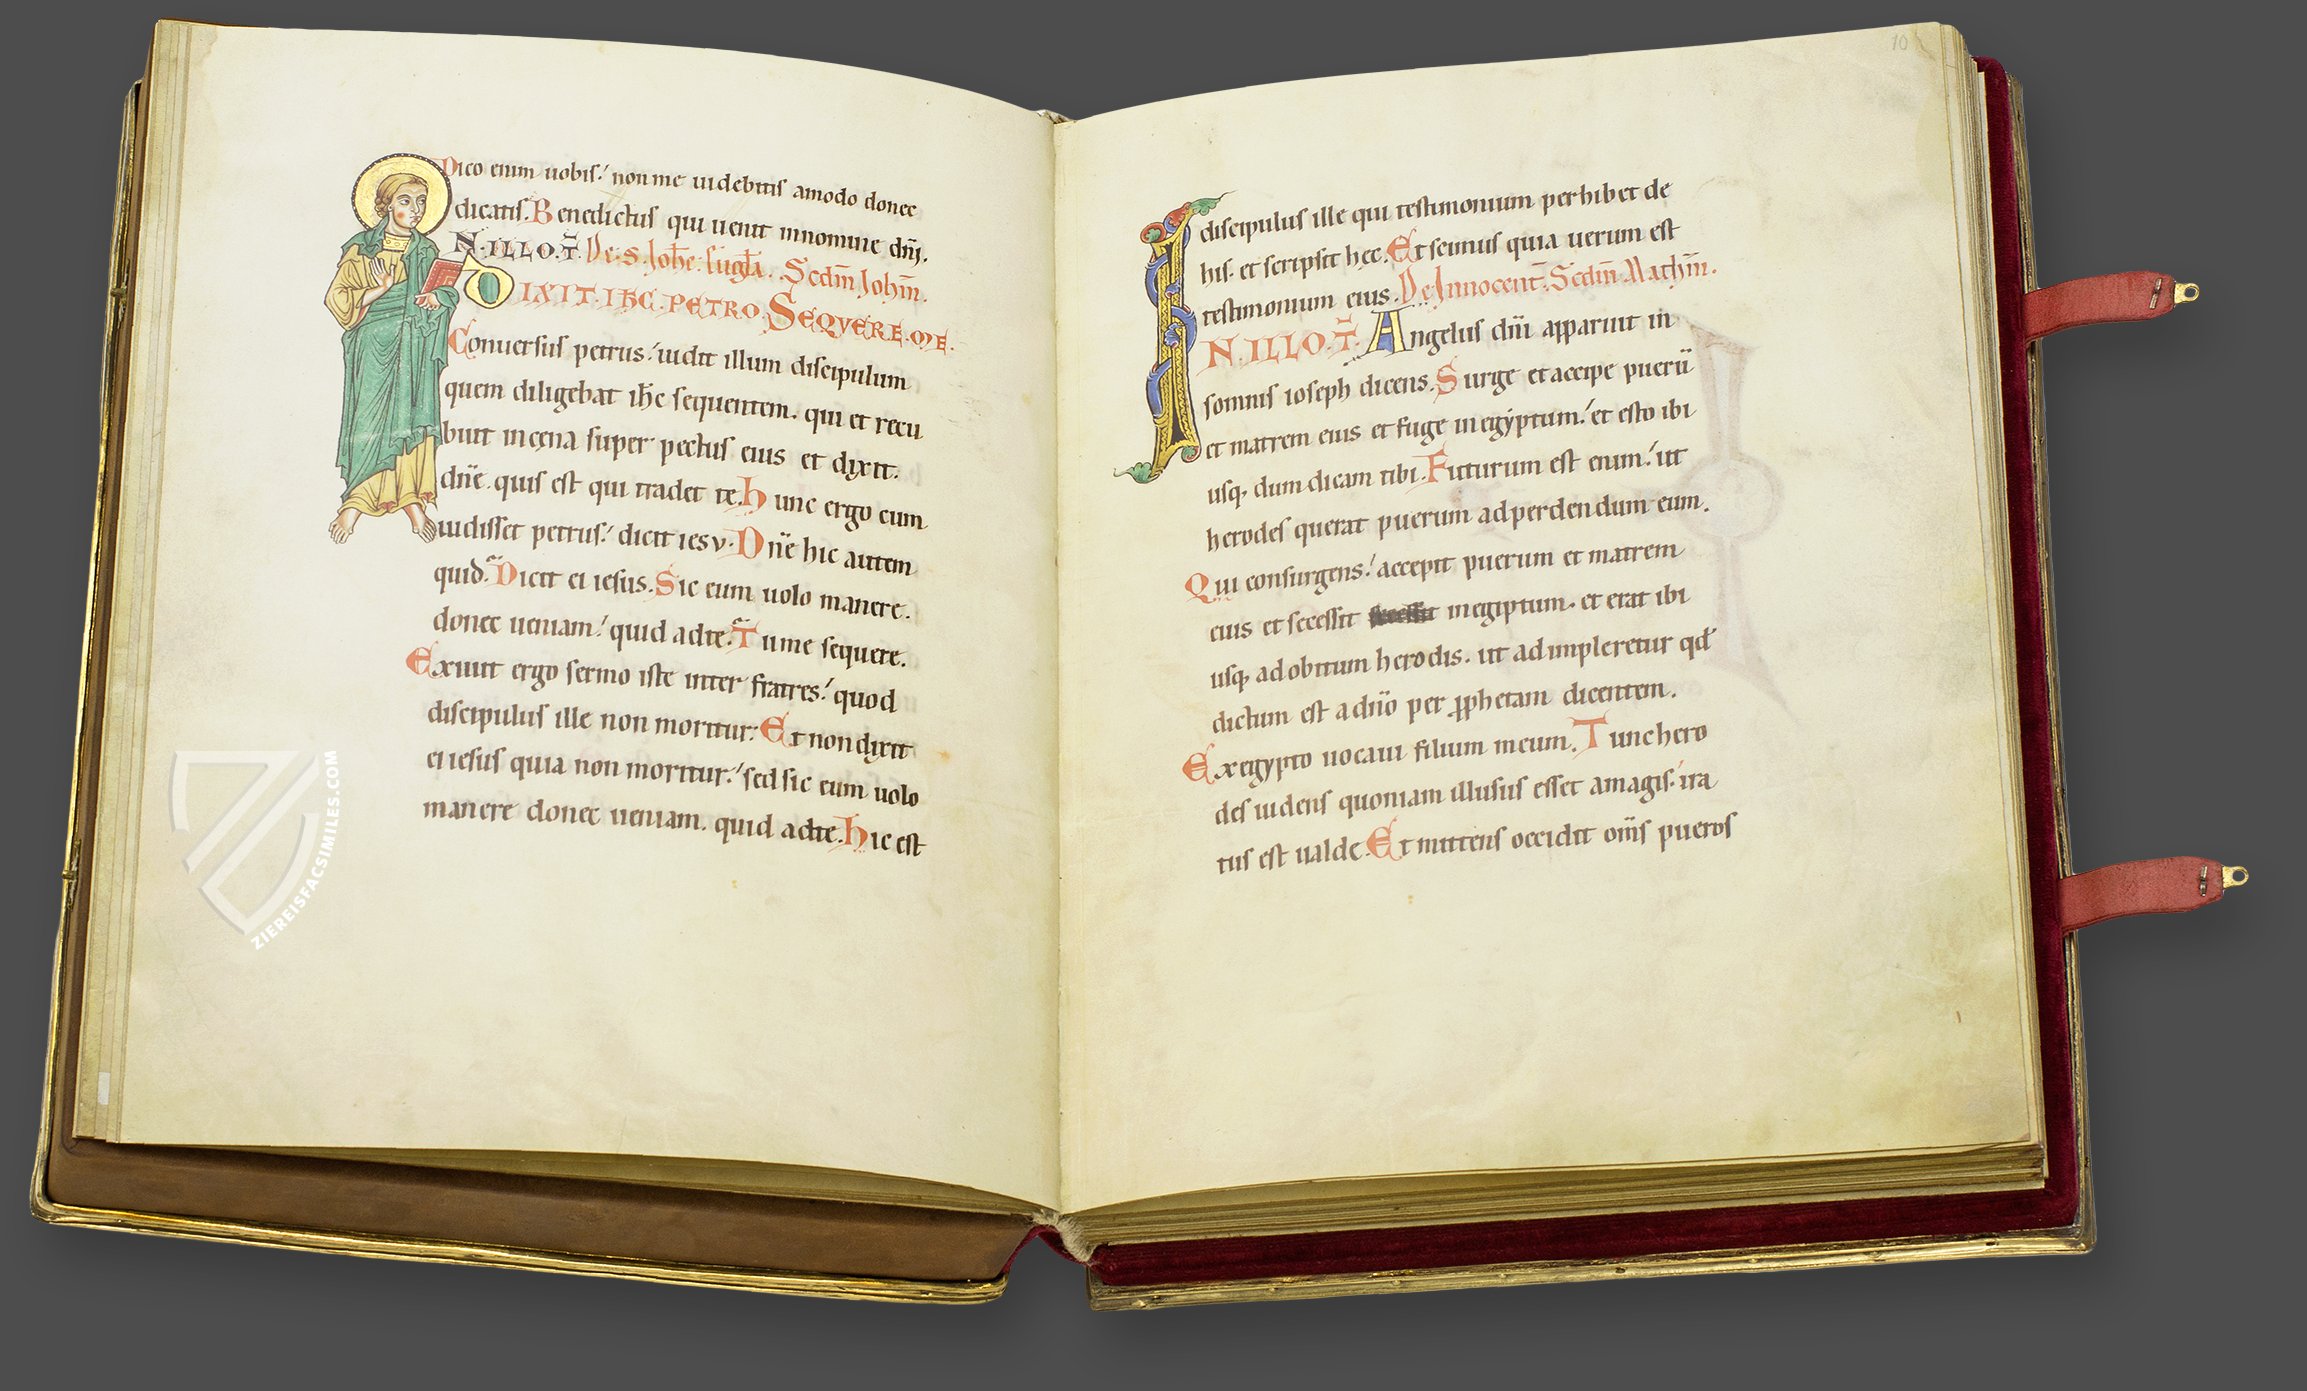 Dico enim uobis. non me uidebitis amodo donec
dicatis. Benedictus qui uenit innomine dñi.
N. ILLO. T̄. De. S. Johe. eugta. Scdm̄ Johm̄.
DIXIT. IHC. PETRO. SEQVERE. ME.
Conuersus petrus. uidit illum discipulum
quem diligebat ihc sequentem. qui et recu
buit in cęna super pectus eius et dixit.
dñe. quis est qui tradet te. Hunc ergo cum
uidisset petrus. dicit iesv. Dñe hic autem
quid. Dicit ei iesus. Sic eum uolo manere.
donec ueniam. quid adte. Tu me sequere.
Exiuit ergo sermo iste inter fratres. quod
discipulus ille non moritur. Et non dixit
ei iesus quia non moritur. sed sic eum uolo
manere donec ueniam. quid adte. Hic est
10
discipulus ille qui testimonium perhibet de
his. et scripsit hec. Et scimus quia uerum est
testimonium eius. De Innocent̄. Scdm̄ Mathm̄.
IN. ILLO. T̄. Angelus dñi apparuit in
somnis ioseph dicens. Surge et accipe puerū
et matrem eius et fuge in egyptum. et esto ibi
usq, dum dicam tibi. Futurum est enim. ut
herodes querat puerum ad perdendum eum.
Qui consurgens. accepit puerum et matrem
eius et secessit in egiptum. et erat ibi
usq, ad obitum herodis. ut adimpleretur qd
dictum est a dño per pphetam dicentem.
Ex egypto uocaui filium meum. Tunc hero
des uidens quoniam illusus esset amagis. ira
tus est ualde. Et mittens occidit om̄s pueros
ZIEREISFACSIMILES.COM